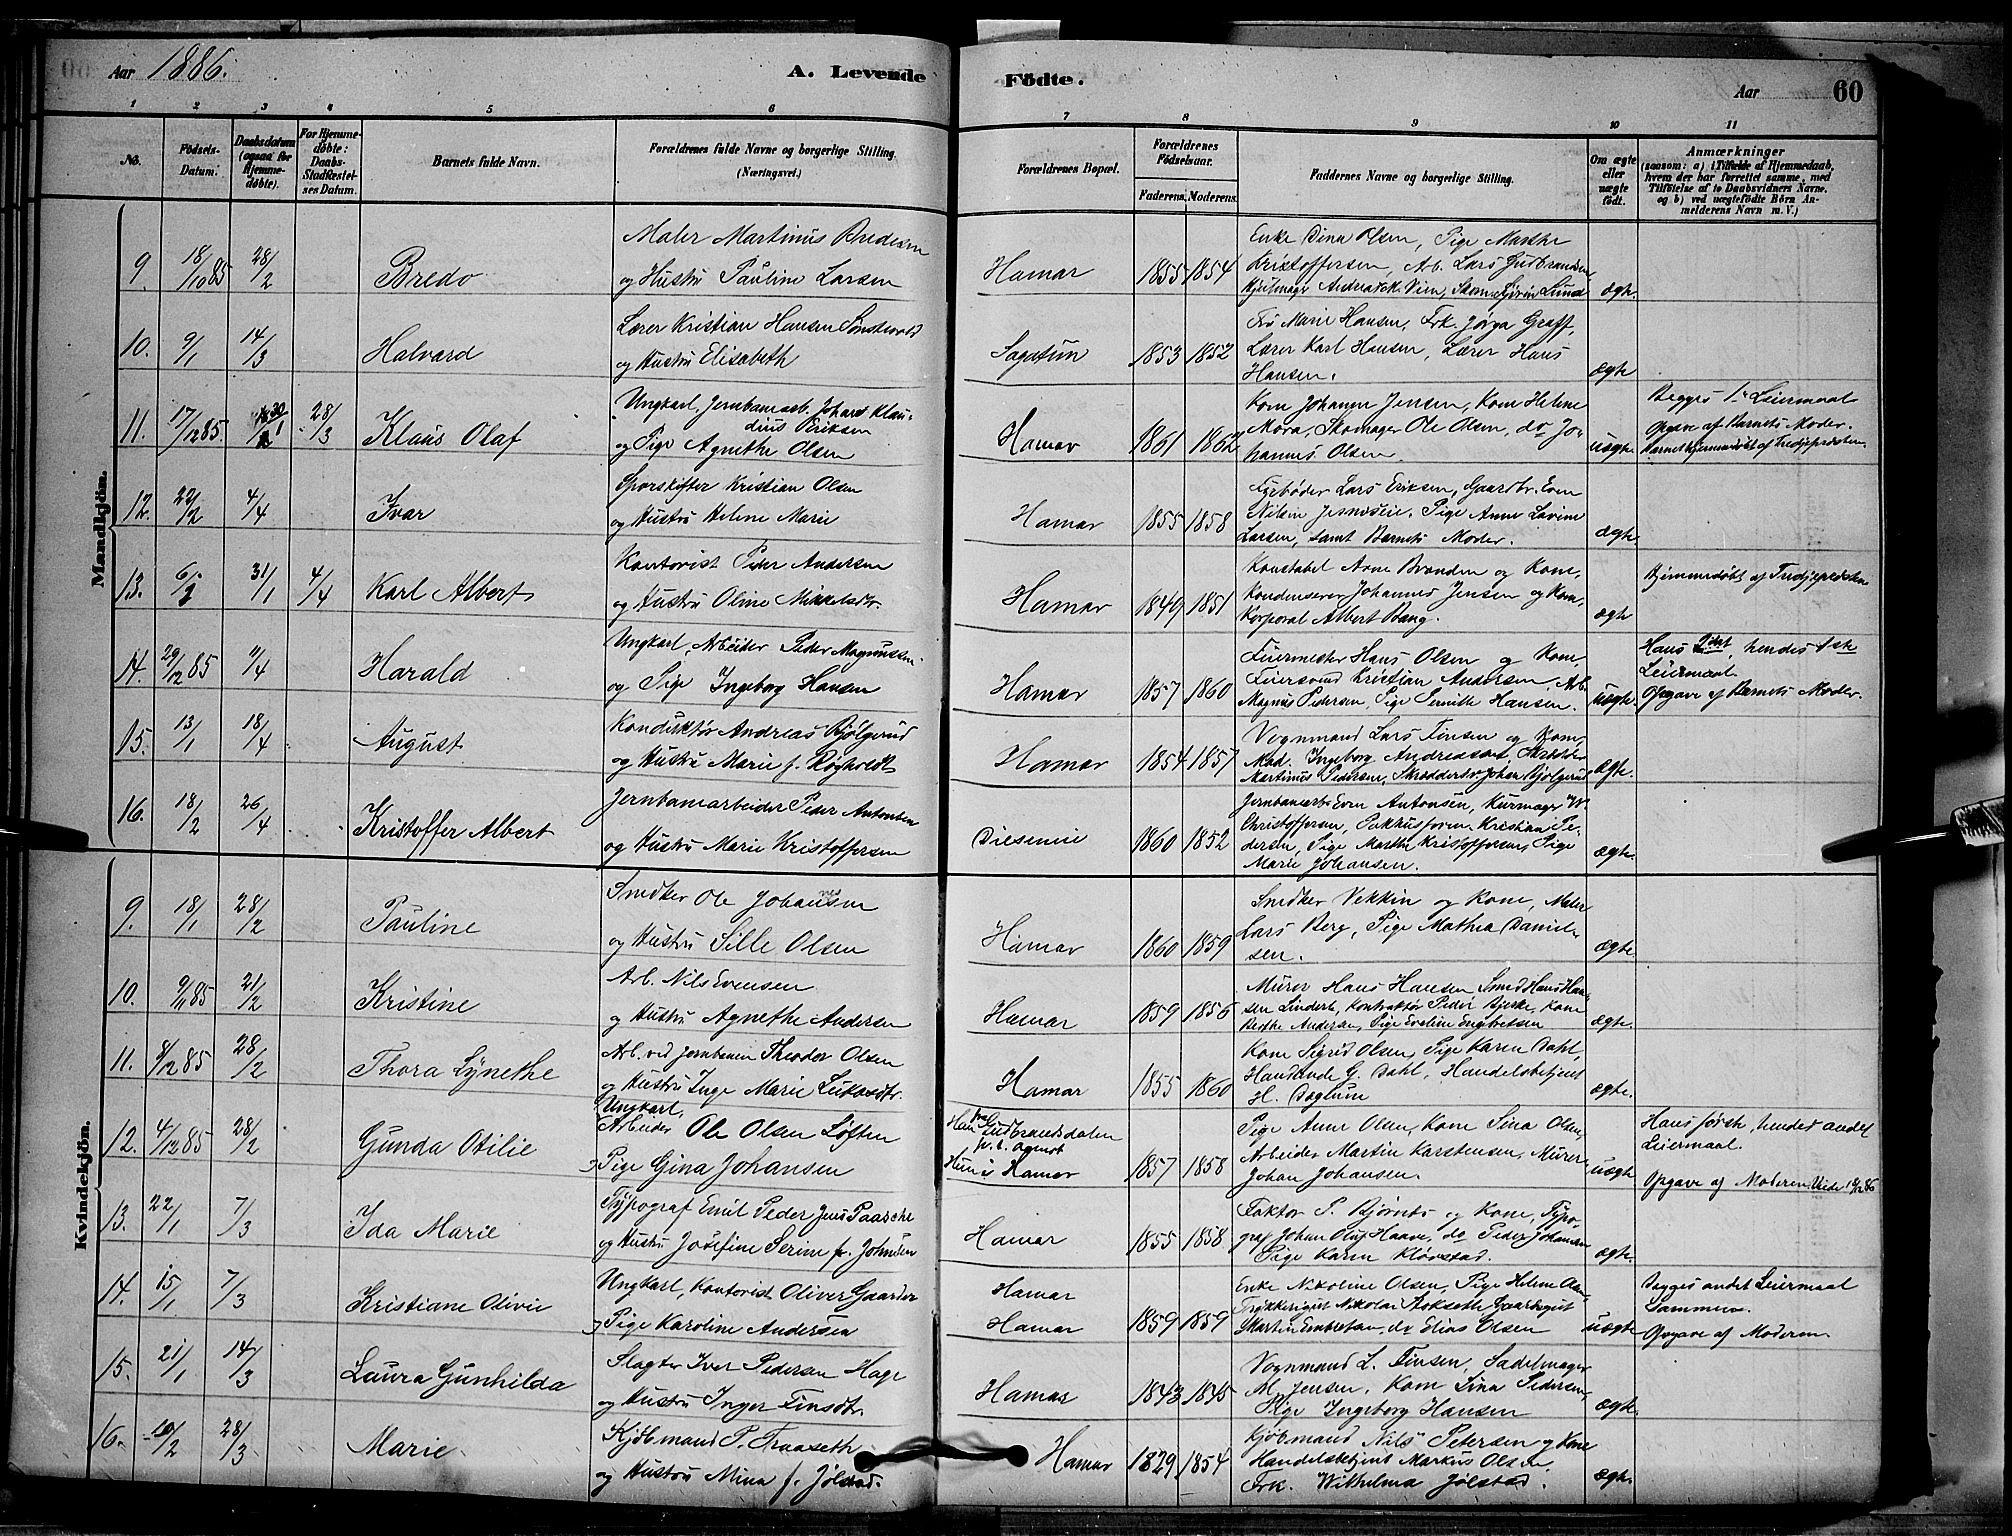 Aar 1886.
A. Levende
Fødte.
Aar
60
1 2 3 4 5 6 7 8 9 10 11
No.
Fødsels-Datum.
Daabsdatum (ogsaa for Hjemmedøbte).
For Hjemmedøbte: Daabs-Stadfæstelses Datum.
Barnets fulde Navn.
Forældrenes fulde Navne og borgerlige Stilling. (Næringsvei.)
Forældrenes Bopæl.
Forældrenes Fødselsaar.
Faderens. Moderens.
Faddernes Navne og borgerlige Stilling.
Om ægte eller uægte født.
Anmærkninger
(saasom: a) i Tilfælde af Hjemmedaab, hvem der har forrettet samme, med Tilføielse af to Daabsvidners Navne, og b) ved uægtefødte Børn Anmelderens Navn m. V.)
Mandkjøn.
9. 18/10 85 28/2 Bredo
Maler Martinus Bredesen
og Hustru Pauline Larsen
Hamar 1855 1854
Enke Dina Olsen, Pige Marthe
Kristoffersen, Arb. Lars Gudbrandsen,
Hjulmager Vien, Lund
ægte.
10. 9/1 14/3 Halvard
Lærer Kristian Hansen
og Hustru Elisabeth
Sagatun 1853 1852
Fru Marie Hansen, Frk. Jørga Graff,
Lærer Karl Hansen, Lærer Hans
Hansen.
ægte
11. 17/12 85 30/1 28/3 Klaus Olaf
Ungkarl, Jernbanearb. Johard Klau-
dius Eriksen
og Pige Agnethe Olsen
Hamar 1861 1862
Kone Johanne Jensen, Kone Helene
Mora, Skomager Ole Olsen, do Jo-
hannes Olsen
uægte
Begges 1ste Leiermaal
Opgave af Barnets Moder.
Barnet hjemmedøbt af Tredjepresten
12. 22/2 4/4 Ivar
Sporskifter Kristian Olsen
og Hustru Helene Marie
Hamar 1855 1858
Fyrbøder Lars Eriksen, Gaardbr. Even
Nilsen Jesneseie, Pige Anne Lovine
Larsen, samt Barnets Moder.
ægte.
13. 6/1 31/1 4/4 Karl Albert
Kontorist Peder Andersen
og Hustru Oline Mikkelsdtr.
Hamar 1849 1851
Konstabel Arne Brenden og Kone,
Kondukterer Johannes Jensen og Kone,
Korporal Albert Bang.
ægte
Hjemmedøbt af Tredjepresten
14. 29/12 85 11/4 Harald
Ungkarl, Arbeider Peder Magnussen
og Pige Ingeborg Hansen
Hamar 1857 1860
Feiermester Hans Olsen og Kone,
Feiersvend Kristian Andersen, Arb.
Magnus Pedersen, Pige Pernille Hansen.
uægte.
Hans 2det, hendes 1ste
Leiermaal
Opgave af Barnets Moder.
15. 13/1 18/4 August
Konduktør Andreas Bjølgerud
og Hustru Marie f. Røghvedt
Hamar 1854 1857
Vognmand Lars Finsen og Kone
Mad. Ingeborg Andreassen,
Martinus Pedersen, Skræddersv. Johan Bjølgerud
ægte.
16. 18/2 26/4 Kristoffer Albert
Jernbanearbeider Peder Antonsen
og Hustru Marie Kristoffersen
Disenseie 1860 1852
Jernbanearb. Even Antonsen, Kurvmager W.
Christoffersen, Pakhusform. Kristian Pe-
dersen, Pige Marthe Kristoffersen, Pige
Marie Johansen.
ægte.
Kvindekjøn.
9. 18/1 28/2 Pauline
Snedker Ole Johannesen
og Hustru Sille Olsen
Hamar 1860 1859
Snedker Vekkin og Kone, Maler
Lars Berg, Pige Mathea Daniel-
sen.
ægte
10. 9/11 85 21/2 Kristine
Arb. Nils Evensen
og Hustru Agnethe Andersen
Hamar 1859 1856
Murer Hans Hansen Smed Hans Han-
sen Linderb, Kontraktør Peder Bjerke, Kone
Berthe Andersen, Pige Eveline Engbretsen
ægte.
11. 8/12 85 28/2 Thora Lynethe
Arb. ved Jernbanen Theodor Olsen
og Hustru Inge Marie Lukasdtr.
Hamar 1855 1860
Kone Sigrid Olsen, Pige Karen Dahl,
Handlende G. Dahl, Handelsbetjent
H. Doglum
ægte.
12. 4/12 85 28/2 Gunda Otilie
Ungkarl,
Arbeider Ole Olsen Løften
Pige Gina Johansen
Han fra Gudbrandsdalen
p.t. Agmot
Hun i Hamar 1857 1858
Pige Anne Olsen, Kone Sina Olsen,
Arbeider Martin Karstensen, Murer
Johan Johansen.
uægte
Hans første hendes andet
Leiermaal.
Opgave af Moderen 18/2 86
13. 22/1 7/3 Ida Marie
Typograf Emil Peder Jens Paasche
og Hustru Josefine Serine f. Johnsen
Hamar 1855 1858
Faktor P. Bjørnts og Kone, Typo-
graf Johan Oluf Haave, do Peder Johansen
Pige Karen Kløvstad.
ægte.
14. 15/1 7/3 Kristiane Olivie
Ungkarl, Kontorist Oliver Gaarder
Pige Karoline Andersen
Hamar
Hamar 1859 1859
Enke Nikoline Olsen, Pige Helene
Nikolai
Martin Engbretsen, do Elias Olsen
uægte
Begges andet Leiermaal
sammen.
Opgave af Moderen
15. 21/1 14/3 Laura Gunhilda
Slagter Iver Pedersen Hage
og Hustru Inger Finsdtr.
Hamar 1843 1845
Vognmand L. Finsen, Sadelmager
M. Jensen, Kone Lina Pedersen,
Pige Ingeborg Hansen
ægte.
16. 10/2 28/3 Marie
Kjøbmand P. Fraaseth
og Hustru Mina f. Jølstad.
Hamar 1829 1854
Kjøbmand Nils Petersen og Kone
Handelsbetjent Markus Olsen,
Frk. Wilhelma Jølstad.
ægte.